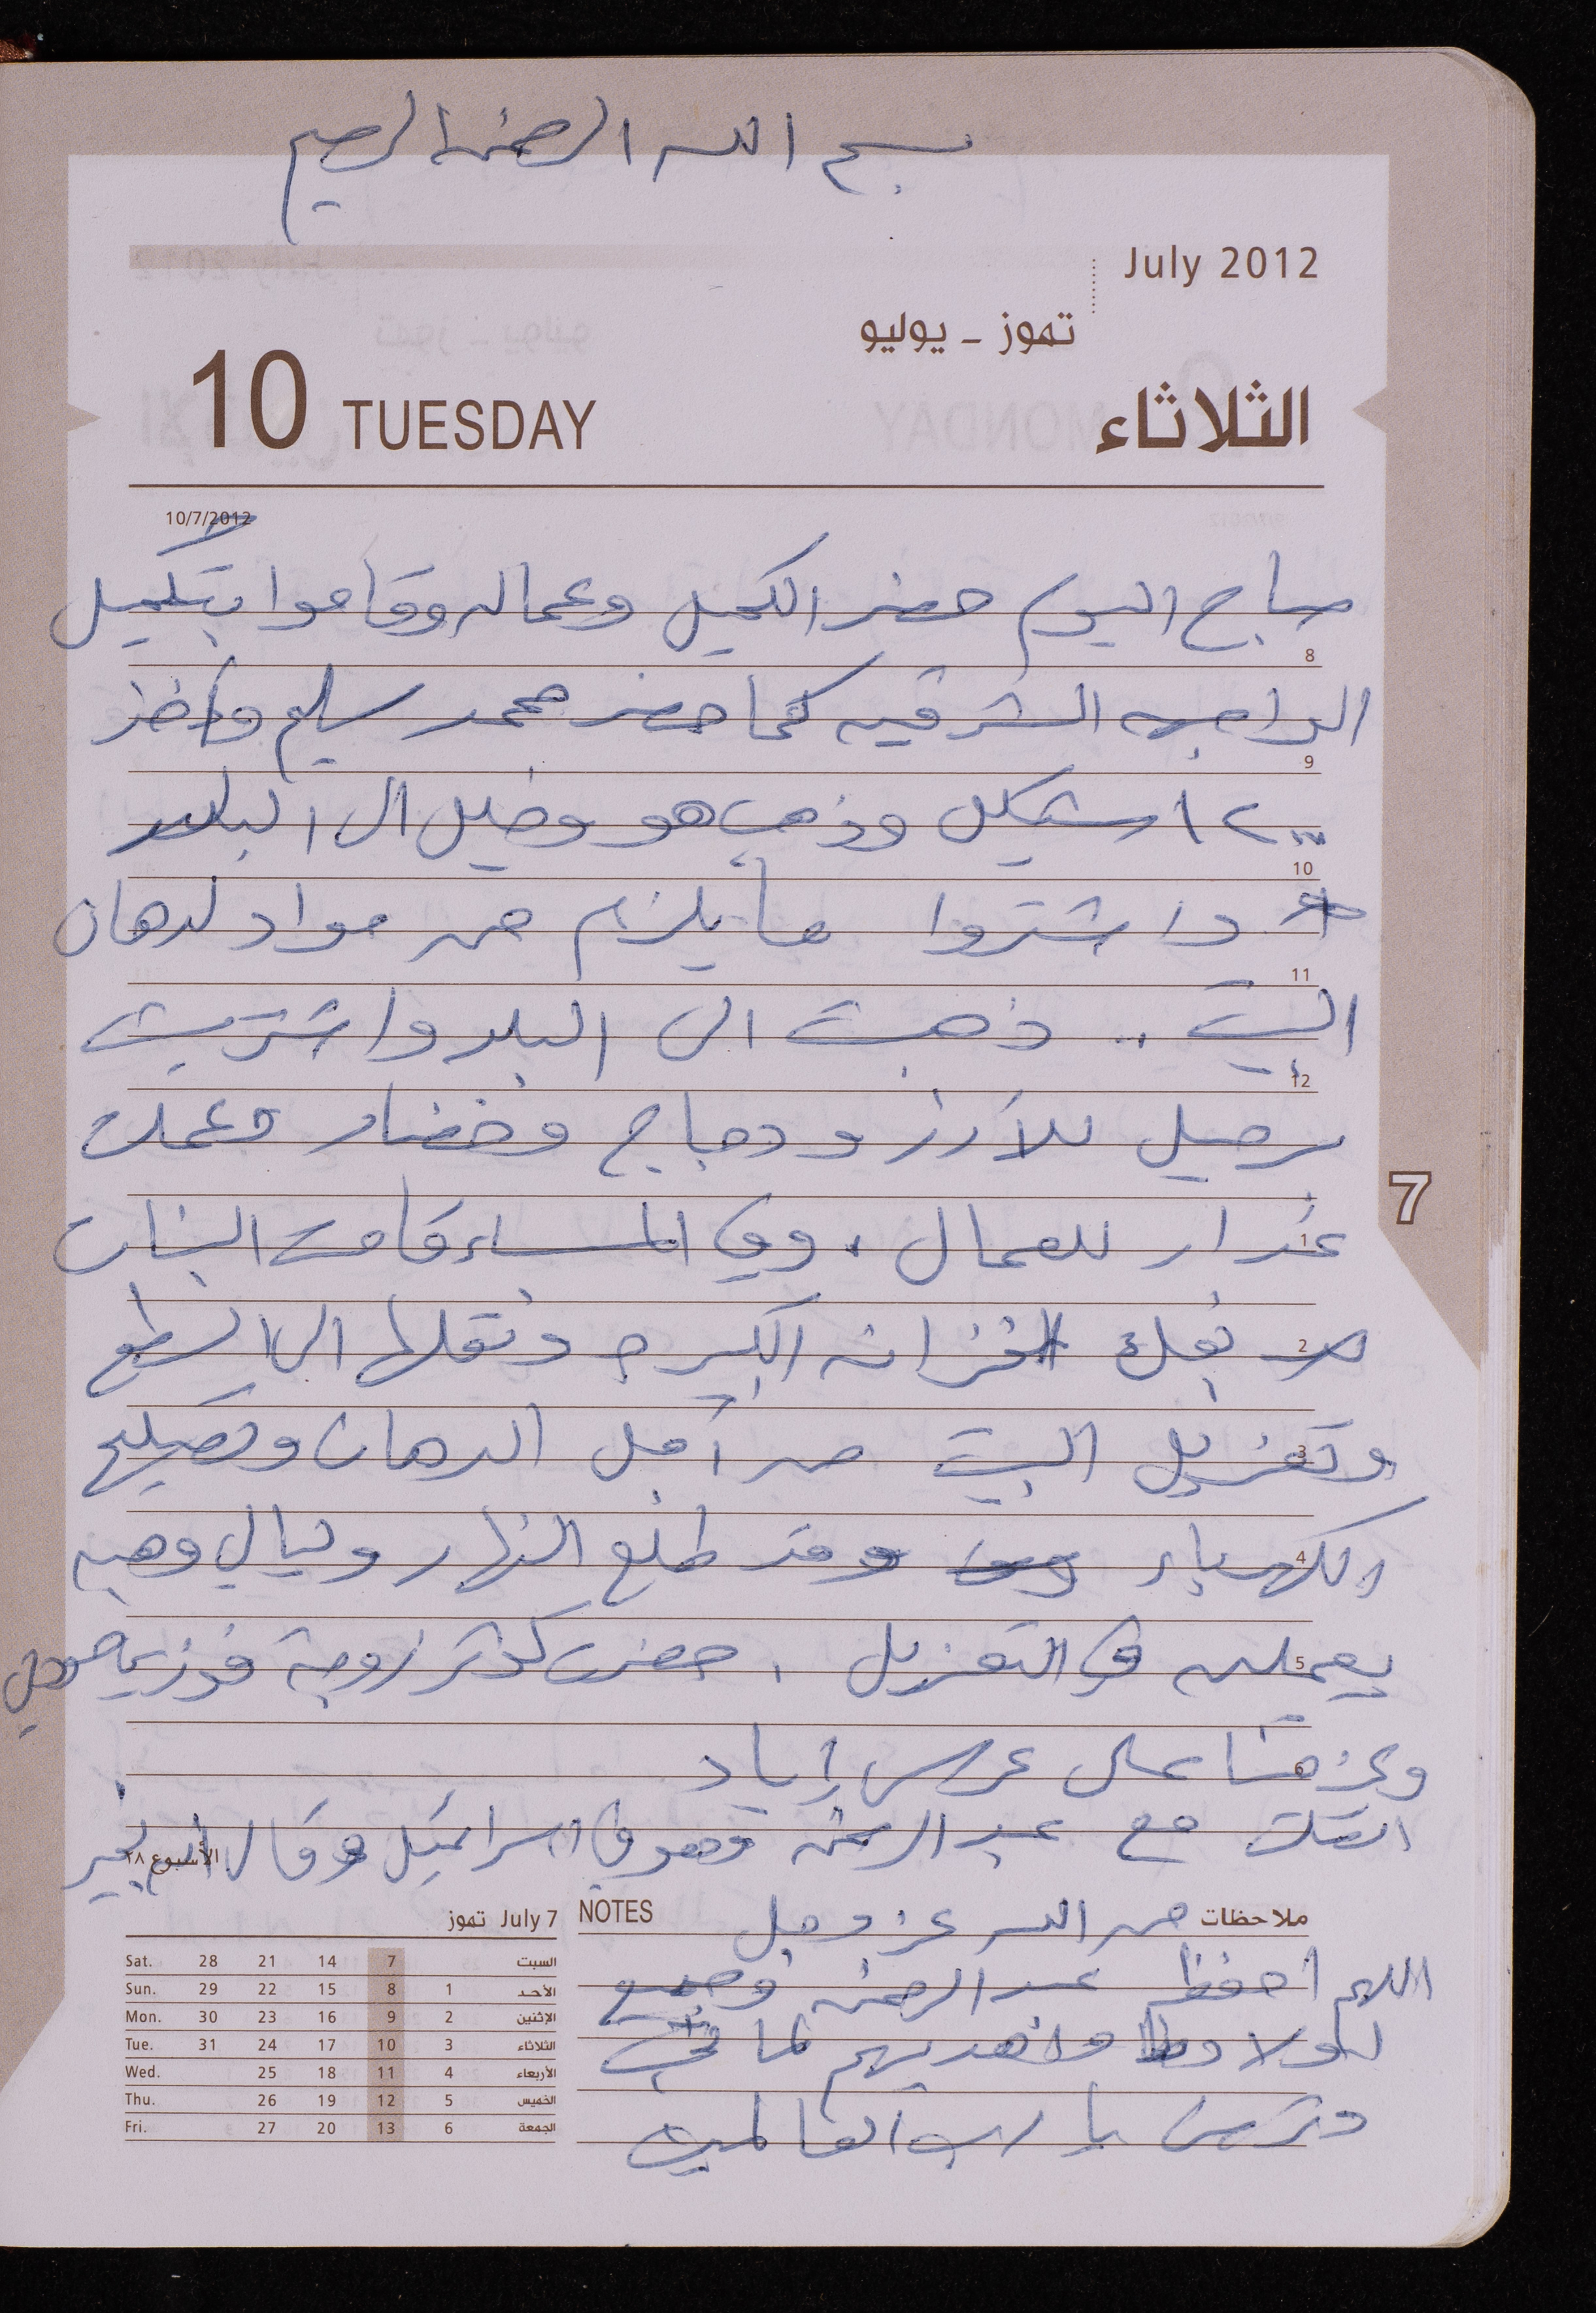 بسم الله الرحمن الرحيم
July 2012
تموز - يوليو
10 TUESDAY الثلاثاء
10/7/2012
صباح اليوم حضر الكميل وعماله وقاموا بتكميل
8
الواجهه الشرقيه كما حضر محمد سليم واخذ
9
٢٠٠٠ شيكل وذهب هو وخليل الى البلد
10
واشتروا ما يلزم من مواد لدهان
11
البيت .. ذهبت الى البلد واشتريت
12
برميل للأرز ودجاج وخضار وعملت
غداء للعمال ، وفي المساء قامت البنات
1
بفك الخزانه الكبيره ونقلها الى السطح
2
وتعزيل البيت من أجل الدهان وتصليح
3
الكهرباء وقد طلع النهار وليالي وهبه
4
يعملن في التعزيل . حضرت كوثر زوجة فوزي
5
وعزمتنا على عرس إياد
6
اتصلت مع عبد الرحمن وهو في اسرائيل وقال انه بخير
الأسبوع ٢٨
ملاحظات NOTES
من الله عز وجل
اللهم احفظ عبد الرحمن وجميع
اولادنا واهديهم لما تحب
وترضى يا رب العالمين
July 7 تموز
السبت 7 14 21 28 Sat.
الأحد 1 8 15 22 29 Sun.
الإثنين 2 9 16 23 30 Mon.
الثلاثاء 3 10 17 24 31 Tue.
الأربعاء 4 11 18 25 Wed.
الخميس 5 12 19 26 Thu.
الجمعة 6 13 20 27 Fri.
7